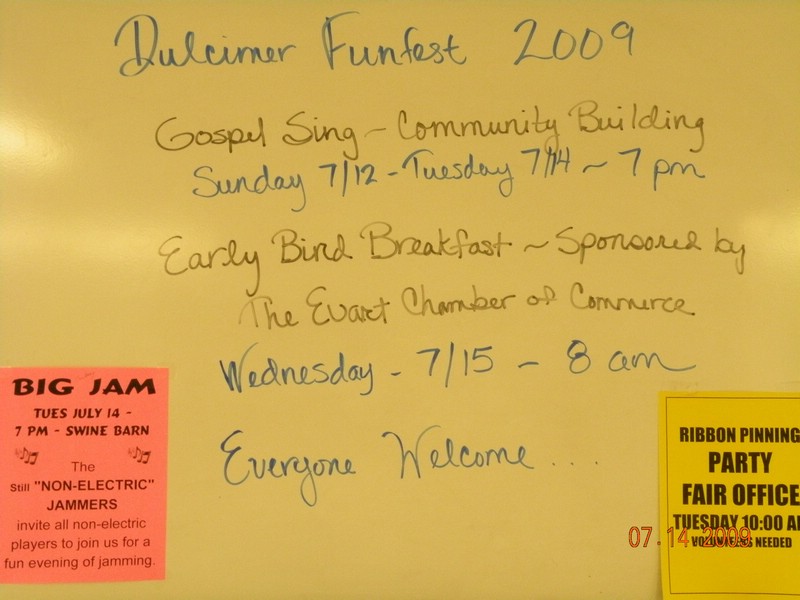 Dulcimer Funfest 2009
Gospel Sing ~ Community Building
Sunday 7/12 - Tuesday 7/14 ~ 7 pm
Early Bird Breakfast ~ Sponsored by
The Evart Chamber of Commerce
Wednesday - 7/15 - 8 am
Everyone Welcome ....
BIG JAM
TUES JULY 14 -
7 PM - SWINE BARN
The
Still "NON-ELECTRIC"
JAMMERS
invite all non-electric
players to join us for a
fun evening of jamming.
RIBBON PINNING
PARTY
FAIR OFFICE
TUESDAY 10:00 A
VOLUNTEERS NEEDED
07.14.2009